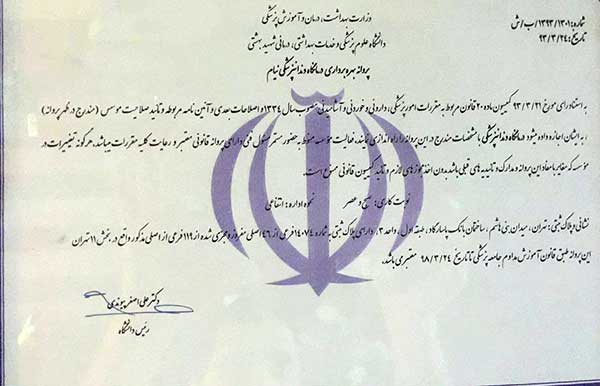 وزارت بهداشت، درمان و آموزش پزشکی
دانشگاه علوم پزشکی و خدمات بهداشتی، درمانی شهید بهشتی
پروانه بهره برداری درمانگاه دندانپزشکی نیام
شماره: ۱۳۹۳/۱۳۰۱/ب/ش
تاریخ: ۹۳/۳/۲۴
به استناد رای مورخ ۹۳/۳/۲۱ کمیسیون ماده ۲۰ قانون مربوط به مقررات امور پزشکی، دارویی و خوردنی و آشامیدنی مصوب سال ۱۳۳۴ و اصلاحات بعدی و آئین نامه مربوطه و تائید صلاحیت موسس (مندرج در ظهر پروانه)
به ایشان اجازه داده میشود درمانگاه دندانپزشکی با مشخصات مندرج در این پروانه را راه اندازی نمایند. فعالیت مؤسسه منوط به حضور مستمر مسئول فنی دارای پروانه قانونی معتبر و رعایت کلیه مقررات میباشد. هر گونه تغییرات در
مؤسسه که مغایر با مفاد این پروانه و مدارک و تائیدیه های قبلی باشد بدون اخذ مجوز های لازم و تائید کمیسیون قانونی ممنوع است.
نوبت کاری: صبح و عصر نحوه اداره: انتفاعی
نشانی و پلاک ثبتی: تهران، میدان بنی هاشم، ساختمان بانک پاسارگاد، طبقه اول، واحد ۲، دارای پلاک ثبتی به شماره ۱۴۰۷۴ فرعی از ۴۶ اصلی مفروز و مجزی شده از ۱۱۹ فرعی از اصلی مذکور واقع در، بخش ۱۱ تهران
این پروانه طبق قانون آموزش مداوم جامعه پزشکی تا تاریخ ۹۸/۳/۲۴ معتبر می باشد.
دکتر علی اصغر پیوندی
رئیس دانشگاه